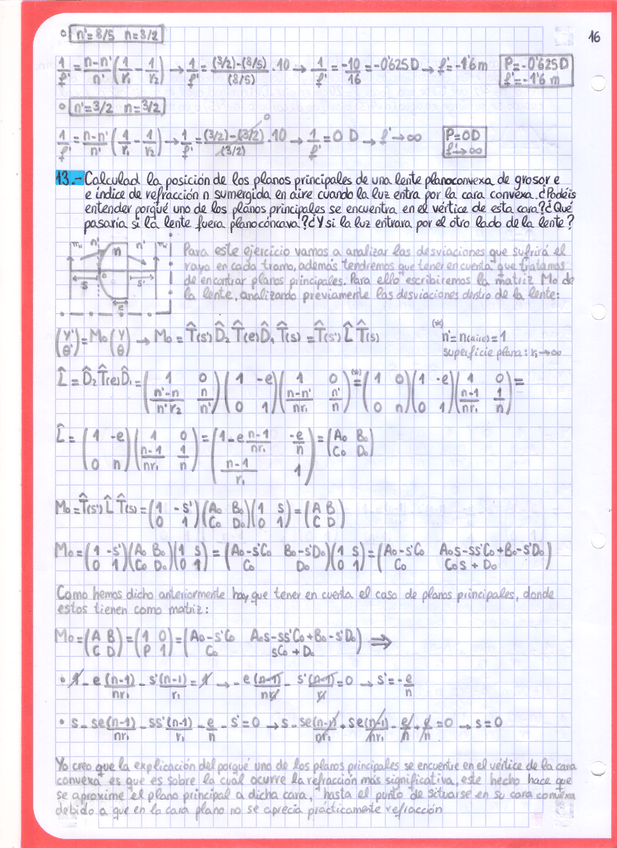 16
○ n'=8/5 n=3/2
1/f' = n-n'/n' (1/r₁ - 1/r₂) → 1/f' = (3/2)-(8/5)/(8/5) · 10 → 1/f' = -10/16 = -0'625 D → f' = -1'6 m P=-0'625D f'=-1'6 m
○ n'=3/2 n=3/2
1/f' = n-n'/n' (1/r₁ - 1/r₂) → 1/f' = (3/2)-(3/2)/(3/2) · 10 → 1/f' = 0 D → f' → ∞ P=0D f'→∞
0
13.- Calculad la posición de los planos principales de una lente planoconvexa de grosor e
e índice de refracción n sumergida en aire cuando la luz entra por la cara convexa. ¿Podéis
entender porqué uno de los planos principales se encuentra en el vértice de esta cara? ¿Qué
pasaría si la lente fuera planocóncava? ¿Y si la luz entrara por el otro lado de la lente?
Para este ejercicio vamos a analizar las desviaciones que sufrirá el
rayo en cada tramo, además tendremos que tener en cuenta que tratamos
de encontrar planos principales. Para ello escribiremos la matriz M₀ de
la lente, analizando previamente las desviaciones dentro de la lente:
n' n n'
s s'
e
(y' θ') = M₀ (y θ) → M₀ = T̂(s') D̂₂ T̂(e) D̂₁ T̂(s) = T̂(s') L̂ T̂(s)
(*) n'=n(aire)=1
superficie plana: r₂→∞
L̂ = D̂₂ T̂(e) D̂₁ = (1 0 n'-n/n'r₂ n/n') (1 -e 0 1) (1 0 n-n'/nr₁ n'/n) (*)= (1 0 0 n) (1 -e 0 1) (1 0 n-1/nr₁ 1/n) =
L̂ = (1 -e 0 n) (1 0 n-1/nr₁ 1/n) = (1-e n-1/nr₁ -e/n n-1/r₁ 1) = (A₀ B₀ C₀ D₀)
M₀ = T̂(s') L̂ T̂(s) = (1 -s' 0 1) (A₀ B₀ C₀ D₀) (1 s 0 1) = (A B C D)
M₀ = (1 -s' 0 1) (A₀ B₀ C₀ D₀) (1 s 0 1) = (A₀-s'C₀ B₀-s'D₀ C₀ D₀) (1 s 0 1) = (A₀-s'C₀ A₀s-ss'C₀+B₀-s'D₀ C₀ C₀s+D₀)
Como hemos dicho anteriormente hay que tener en cuenta el caso de planos principales, donde
estos tienen como matriz:
M₀ = (A B C D) = (1 0 P 1) = (A₀-s'C₀ A₀s-ss'C₀+B₀-s'D₀ C₀ sC₀+D₀) ⇒
• 1 - e(n-1)/nr₁ - s'(n-1)/r₁ = 1 → -e(n-1)/nr₁ - s'(n-1)/r₁ = 0 → s' = -e/n
• s - se(n-1)/nr₁ - ss'(n-1)/r₁ - e/n - s' = 0 → s - se(n-1)/nr₁ + se(n-1)/nr₁ - e/n + e/n = 0 → s = 0
Yo creo que la explicación del porqué uno de los planos principales se encuentre en el vértice de la cara
convexa es que es sobre la cual ocurre la refracción más significativa, este hecho hace que
se aproxime el plano principal a dicha cara, hasta el punto de situarse en su cara convexa
debido a que en la cara plano no se aprecia prácticamente refracción